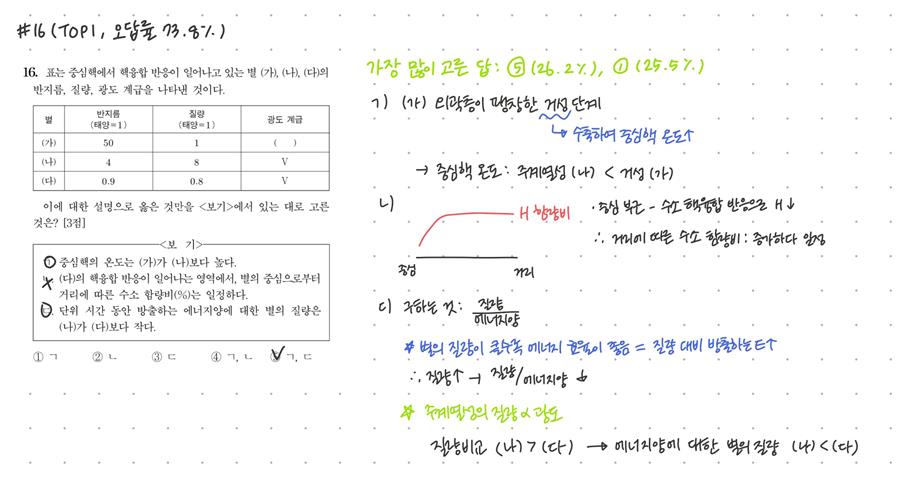 #16 (TOP1, 오답률 73.8%)
16. 표는 중심핵에서 핵융합 반응이 일어나고 있는 별 (가), (나), (다)의
반지름, 질량, 광도 계급을 나타낸 것이다.
별 반지름 (태양=1) 질량 (태양=1) 광도 계급
(가) 50 1 ( )
(나) 4 8 V
(다) 0.9 0.8 V
이에 대한 설명으로 옳은 것만을 <보기>에서 있는 대로 고른
것은? [3점]
<보 기>
ㄱ. 중심핵의 온도는 (가)가 (나)보다 높다.
ㄴ. (다)의 핵융합 반응이 일어나는 영역에서, 별의 중심으로부터
거리에 따른 수소 함량비(%)는 일정하다.
ㄷ. 단위 시간 동안 방출하는 에너지양에 대한 별의 질량은
(나)가 (다)보다 작다.
① ㄱ ② ㄴ ③ ㄷ ④ ㄱ, ㄴ ⑤ ㄱ, ㄷ
가장 많이 고른 답 : ⑤ (26.2%), ① (25.5%)
ㄱ) (가) 외곽층이 팽창한 거성 단계
↳ 수축하여 중심핵 온도↑
→ 중심핵 온도 : 주계열성 (나) < 거성 (가)
ㄴ)
H 함량비
중심 거리
· 중심 부근 - 수소 핵융합 반응으로 H↓
∴ 거리에 따른 수소 함량비 : 증가하다 일정
ㄷ) 구하는 것 : 질량/에너지양
☆ 별의 질량이 클수록 에너지 효율이 좋음 = 질량 대비 방출하는 E↑
∴ 질량↑ → 질량/에너지양 ↓
☆ 주계열성의 질량 ∝ 광도
질량비교 (나) > (다) → 에너지양에 대한 별의 질량 (나) < (다)